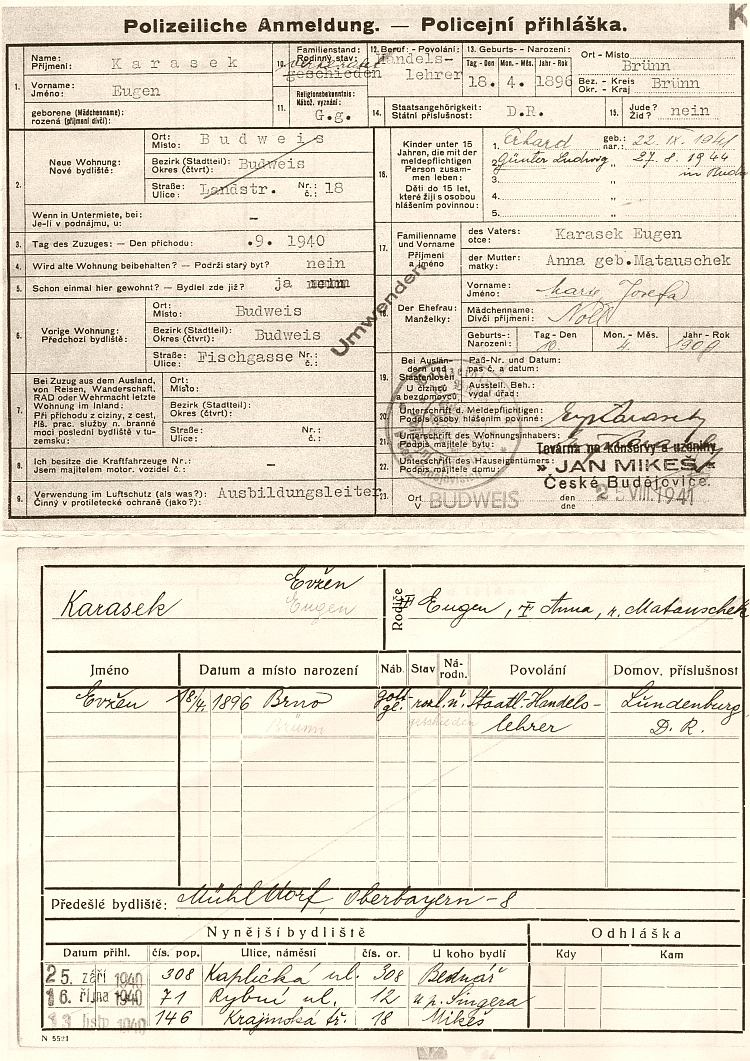 K
Polizeiliche Anmeldung. — Policejní přihláška.
1.
Name: Příjmení: Karasek
Vorname: Jméno: Eugen
geborene (Mädchenname): rozená (příjmení dívčí):
10. Familienstand: Rodinný stav: geschieden verheiratet
11. Religionsbekenntnis: Nábož. vyznání: G.g.
12. Beruf: - Povolání: Handels-
lehrer
13. Geburts- - Narození:
Tag - Den Mon.- Měs. Jahr - Rok
18. 4. 1896
Ort - Místo Brünn
Bez. - Kreis Okr. - Kraj Brünn
14. Staatsangehörigkeit: Státní příslušnost: D.R.
15. Jude? Žid? nein
2. Neue Wohnung: Nové bydliště:
Ort: Místo: Budweis
Bezirk (Stadtteil): Okres (čtvrť): Budweis
Straße: Ulice: Landstr. Nr.: č.: 18
Wenn in Untermiete, bei: Je-li v podnájmu, u: —
3. Tag des Zuzuges: — Den příchodu: .9. 1940
4. Wird alte Wohnung beibehalten? — Podrží starý byt? nein
5. Schon einmal hier gewohnt? — Bydlel zde již? ja nein
6. Vorige Wohnung: Předchozí bydliště:
Ort: Místo: Budweis
Bezirk (Stadtteil): Okres (čtvrť): Budweis
Straße: Ulice: Fischgasse Nr.: č.:
7. Bei Zuzug aus dem Ausland,
von Reisen, Wanderschaft,
RAD oder Wehrmacht letzte
Wohnung im Inland:
Při příchodu z ciziny, z cest,
říš. prac. služby n. branné
moci poslední bydliště v tu-
zemsku:
Ort: Místo:
Bezirk (Stadtteil): Okres (čtvrť):
Straße: Ulice: Nr.: č.:
8. Ich besitze die Kraftfahrzeuge Nr.: Jsem majitelem motor. vozidel č.: —
9. Verwendung im Luftschutz (als was?): Činný v protiletecké ochraně (jako?): Ausbildungsleiter
16. Kinder unter 15
Jahren, die mit der
meldepflichtigen
Person zusam-
men leben:
Děti do 15 let,
které žijí s osobou
hlášením povinnou:
1. Erhard geb.: nar.: 22. IX. 1941
2. Günter Ludwig „ 27. 8. 1944
3. „ in Budw
4. „
5. „
17. Familienname
und Vorname
Příjmení
a jméno
des Vaters: otce: Karasek Eugen
der Mutter: matky: Anna geb.Matauschek
18. Der Ehefrau: Manželky:
Vorname: Jméno: Marie Josefa
Mädchenname: Dívčí příjmení: Noll
Geburts-: Narození: Tag - Den Mon. - Měs. Jahr - Rok
10. 4. 1909
Umwenden
19. Bei Auslän-
dern und
Staatenlosen
U cizinců
a bezdomovců
Paß-Nr. und Datum: pas č. a datum:
Ausstell. Beh.: vydal úřad:
20. Unterschrift d. Meldepflichtigen: Podpis osoby hlášením povinné: Eug Karasek
21. Unterschrift des Wohnungsinhabers: Podpis majitele bytu:
22. Unterschrift des Hauseigentümers: Podpis majitele domu:
Továrna na konservy a uzeniny
„ JAN MIKEŠ "
České Budějovice.
23. Ort V BUDWEIS den dne 25 VIII. 1941
Karasek Evžen
Eugen
Rodiče
Eugen, Anna, r. Matauschek
Jméno Datum a místo narození Náb. Stav Ná-rodn. Povolání Domov. příslušnost
Evžen 18/4. 1896 Brno gott-gl. rozl. n. Staatl. Handels- Lundenburg,
Brünn geschieden lehrer D. R.
Předešlé bydliště: Mühldorf, Oberbayern - 8
Nynější bydliště Odhláška
Datum přihl. čís. pop. Ulice, náměstí čís. or. U koho bydlí Kdy Kam
25. září 1940 308 Kaplická ul. 308 Bednář
16. října 1940 71 Rybní ul. 12 u p. Singera
13 listo 1940 146 Krajinská tř. 18 Mikeš
N 5521